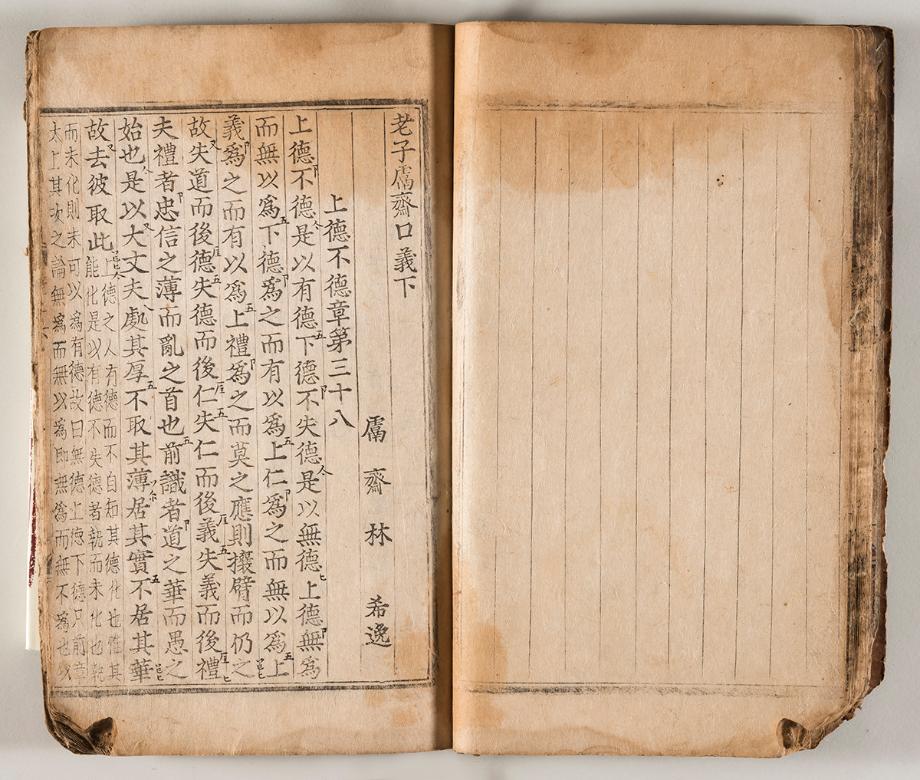 老子鬳齋口義下
鬳齋 林 希逸
上德不德章第三十八
上德不德是以有德下德不失德是以無德上德無爲
而無以爲下德爲之而有以爲上仁爲之而無以爲上
義爲之而有以爲上禮爲之而莫之應則攘臂而仍之
故失道而後德失德而後仁失仁而後義失義而後禮
夫禮者忠信之薄而亂之首也前識者道之華而愚之
始也是以大丈夫處其厚不取其薄居其實不居其華
故去彼取此
上德之人有德而不自知其德化也惟其
能化是以有德不失德者執而未化也執
而未化則未可以爲有德故曰無德上德下德只前章
太上其次之論無爲而無以爲即無爲而無不爲也以